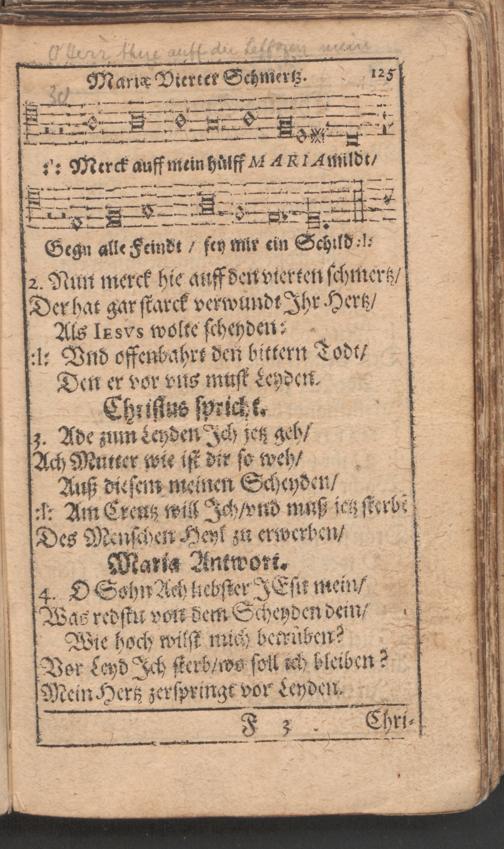 O Herr thue auff die Leffzen mein
Mariæ Vierter Schmertz. 125
30
:': Merck auff mein hülff MARIA mildt/
Gegn alle Feindt / sey mir ein Schild :l:
2. Nun merck hie auff den vierten schmertz/
Der hat gar starck verwundt Jhr Hertz/
Als IESVS wolte scheyden:
:l: Vnd offenbahrt den bittern Todt/
Den er vor vns must Leyden.
Christus spricht.
3. Ade zum Leyden Jch jetz geh/
Ach Mutter wie ist dir so weh/
Auß diesem meinen Scheyden/
:l: Am Creutz will Jch/vnd muß jetz sterbē
Des Menschen Heyl zu erwerben/
Maria Antwort.
4. O Sohn Ach liebster JEsu mein/
Was redstu von dem Scheyden dein/
Wie hoch wilst mich betrüben?
Vor Leyd Jch sterb/wo soll ich bleiben?
Mein Hertz zerspringt vor Leyden.
F 3 Chri-